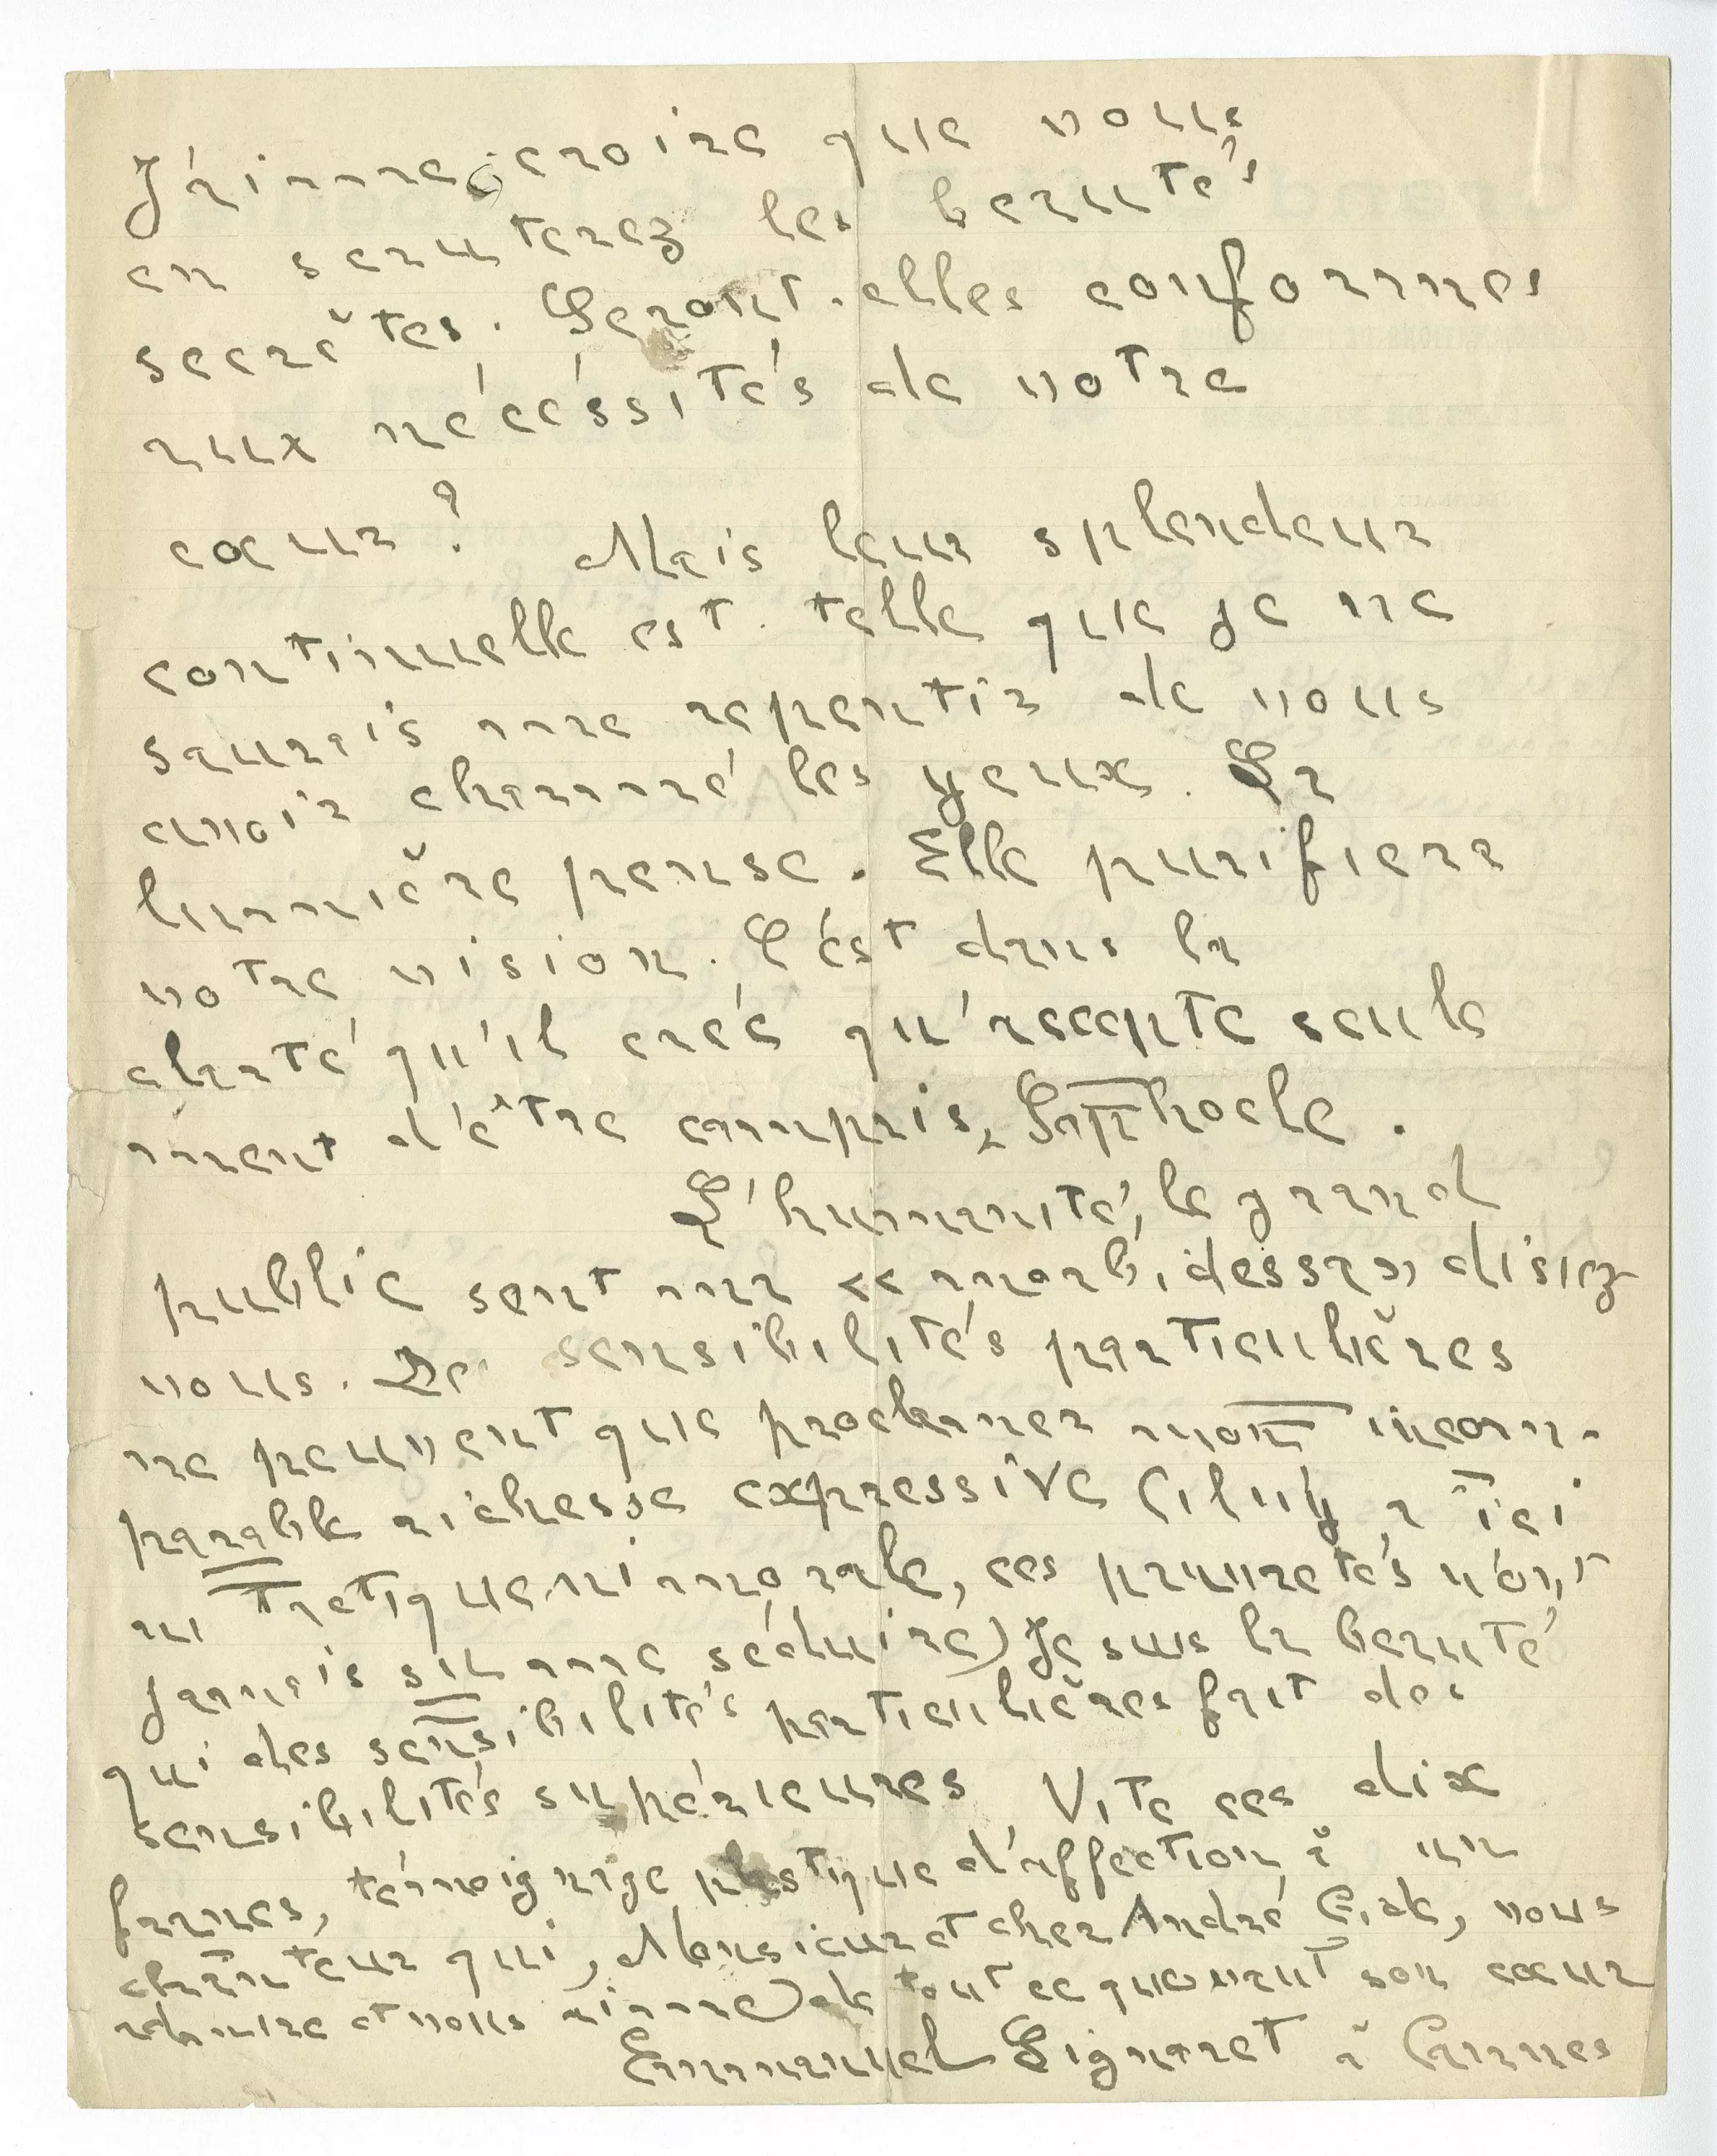 J'aime à croire que vous
en scruterez les beautés
secrètes. Seront-elles conformes
aux nécéssités de votre
cœur ? Mais leur splendeur
continuelle est telle que je ne
saurais me repentir de vous
avoir charmé les yeux. La
lumière pense. Elle purifiera
votre vision. C'est dans la
clarté qu'il créé qu'accepte seule
ment d'être compris, Sophocle.
L'humanité, le grand
public sent ma « morbidesse » disiez
vous. De sensibilités particulières
ne peuvent que proclamer mon incom-
parable richesse expressive (il y a ici
un tretiquemimorale, ces pauvretés n'ont
jamais su me séduire) Je suis la beauté
qui des sensibilités particulières fait des
sensibilités supérieures Vite ces dix
francs, témoignage plastique d'affection à un
chanteur qui, Monsieur et cher André Gide, vous
admire et vous aime de tout ce que vaut son cœur
Emmanuel Signoret à Cannes